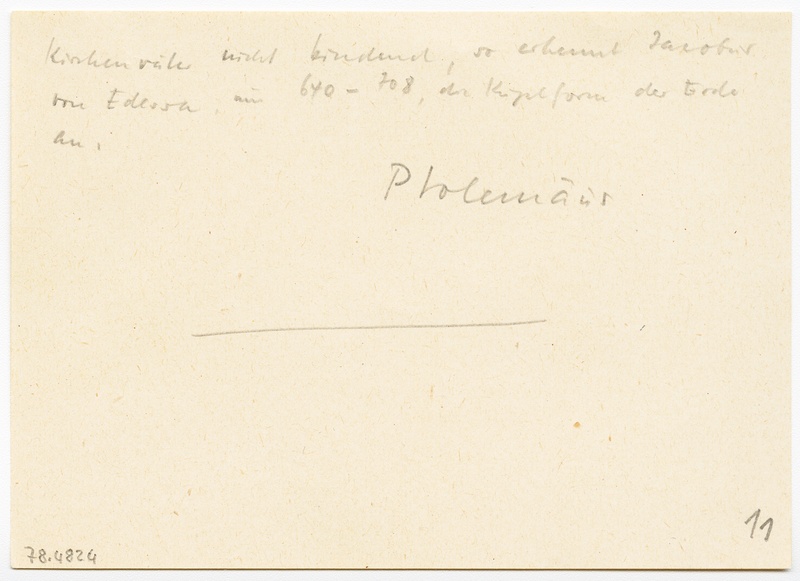 Kirchenväter nicht bindend, so erkennt Jacobus
von Edessa, um 640 – 708, die Kugelform der Erde
an.
Ptolemäus
11
78.4824